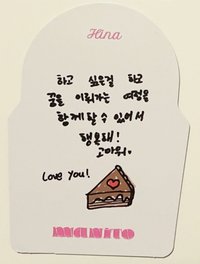 Hina
하고 싶은걸 하고
꿈을 이뤄가는 여정을
함께할 수 있어서
행운해!
고마워.
Love you!
MANITO